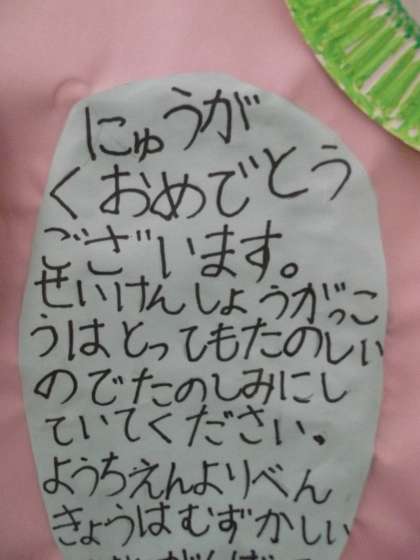 にゅうが
くおめでとう
ございます。
せいけんしょうがっこ
うはとってもたのしい
のでたのしみにし
ていてください。
ようちえんよりべん
きょうはむずかしい